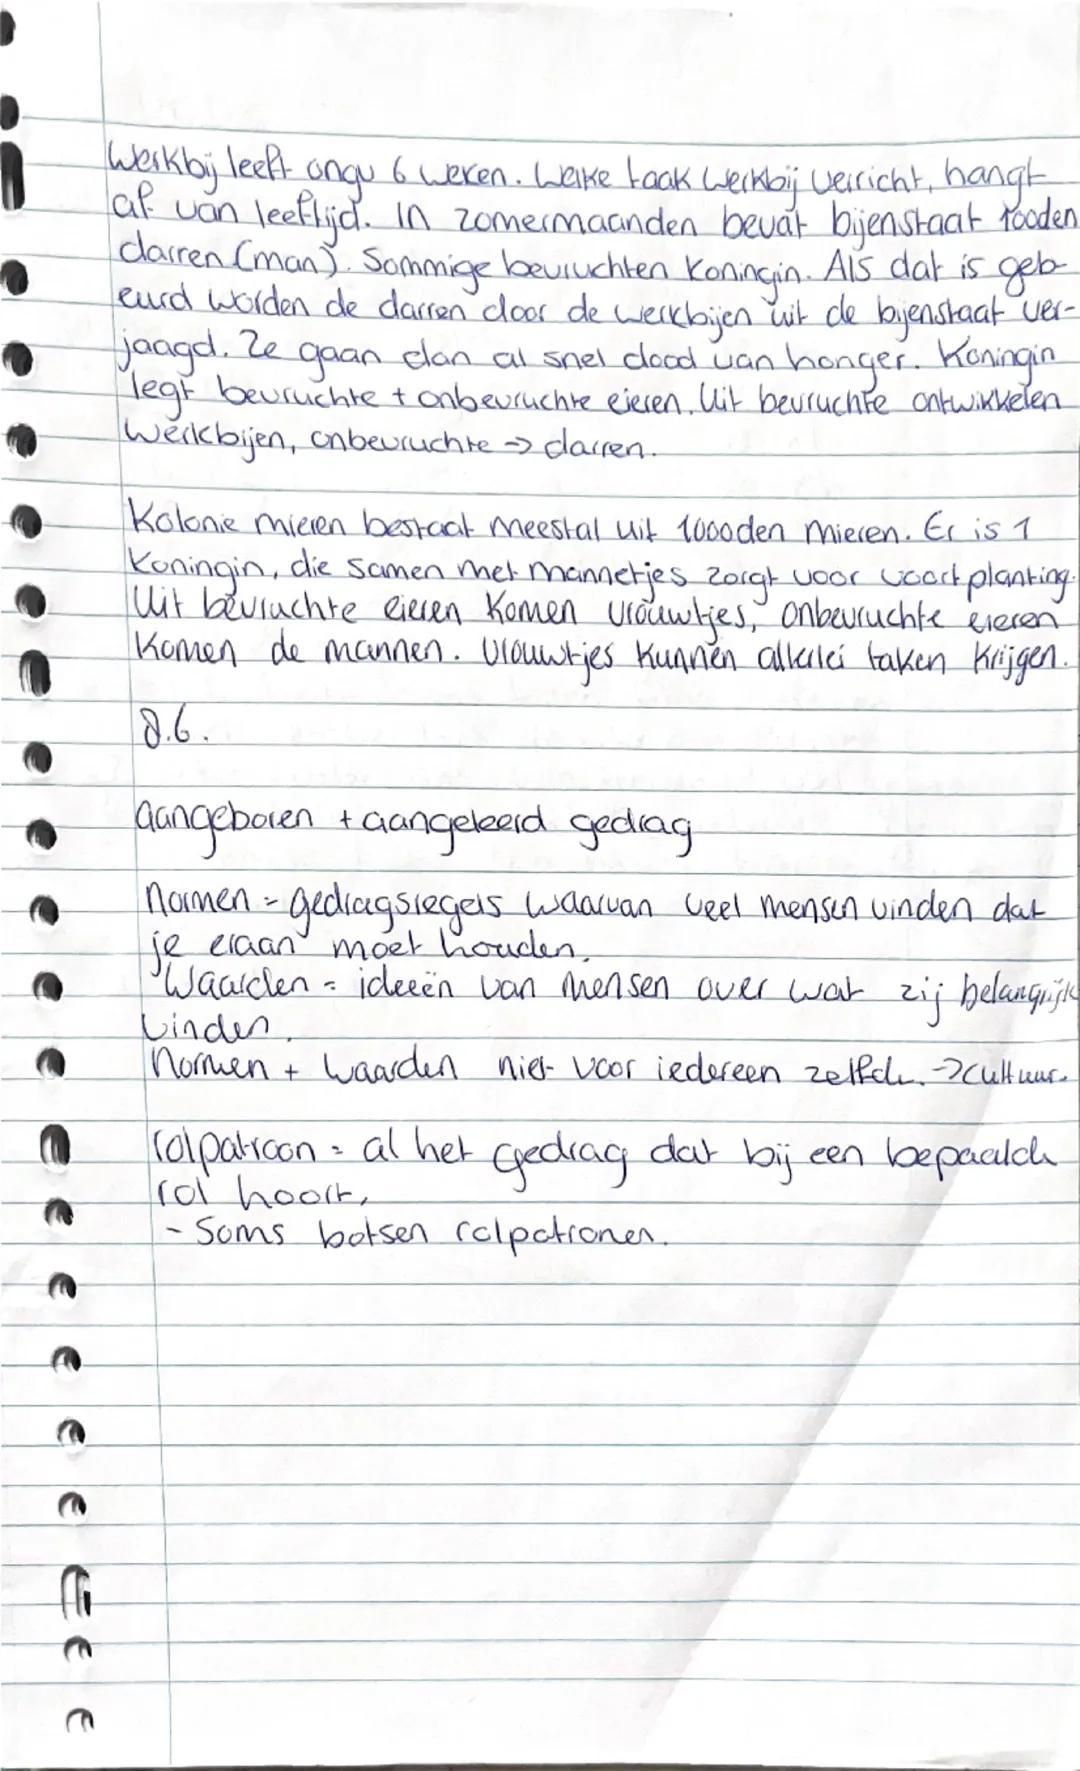 Werkbij leeft ongv 6 weken. Welke taak werkbij verricht, hangt
af van leeftijd. In zomermaanden bevat bijenstaat 100den
darren (man). Sommige bevruchten koningin. Als dat is geb-
eurd worden de darren door de werkbijen uit de bijenstaat ver-
jaagd. Ze gaan dan al snel dood van honger. Koningin
legt bevruchte + onbevruchte eieren. Uit bevruchte ontwikkelen
werkbijen, onbevruchte → darren.
Kolonie mieren bestaat meestal uit 1000den mieren. Er is 1
koningin, die samen met mannetjes zorgt voor voortplanting.
Uit bevruchte eieren komen vrouwtjes, onbevruchte eieren
komen de mannen. Vrouwtjes kunnen allerlei taken krijgen.
8.6.
aangeboren + aangeleerd gedrag
Normen = gedragsregels waarvan veel mensen vinden dat
je eraan moet houden.
Waarden = ideeën van mensen over wat zij belangrijk
vinden.
Normen + waarden niet voor iedereen zelfde. → cultuur.
rolpatroon = al het gedrag dat bij een bepaalde
rol hoort.
- Soms botsen rolpatronen.